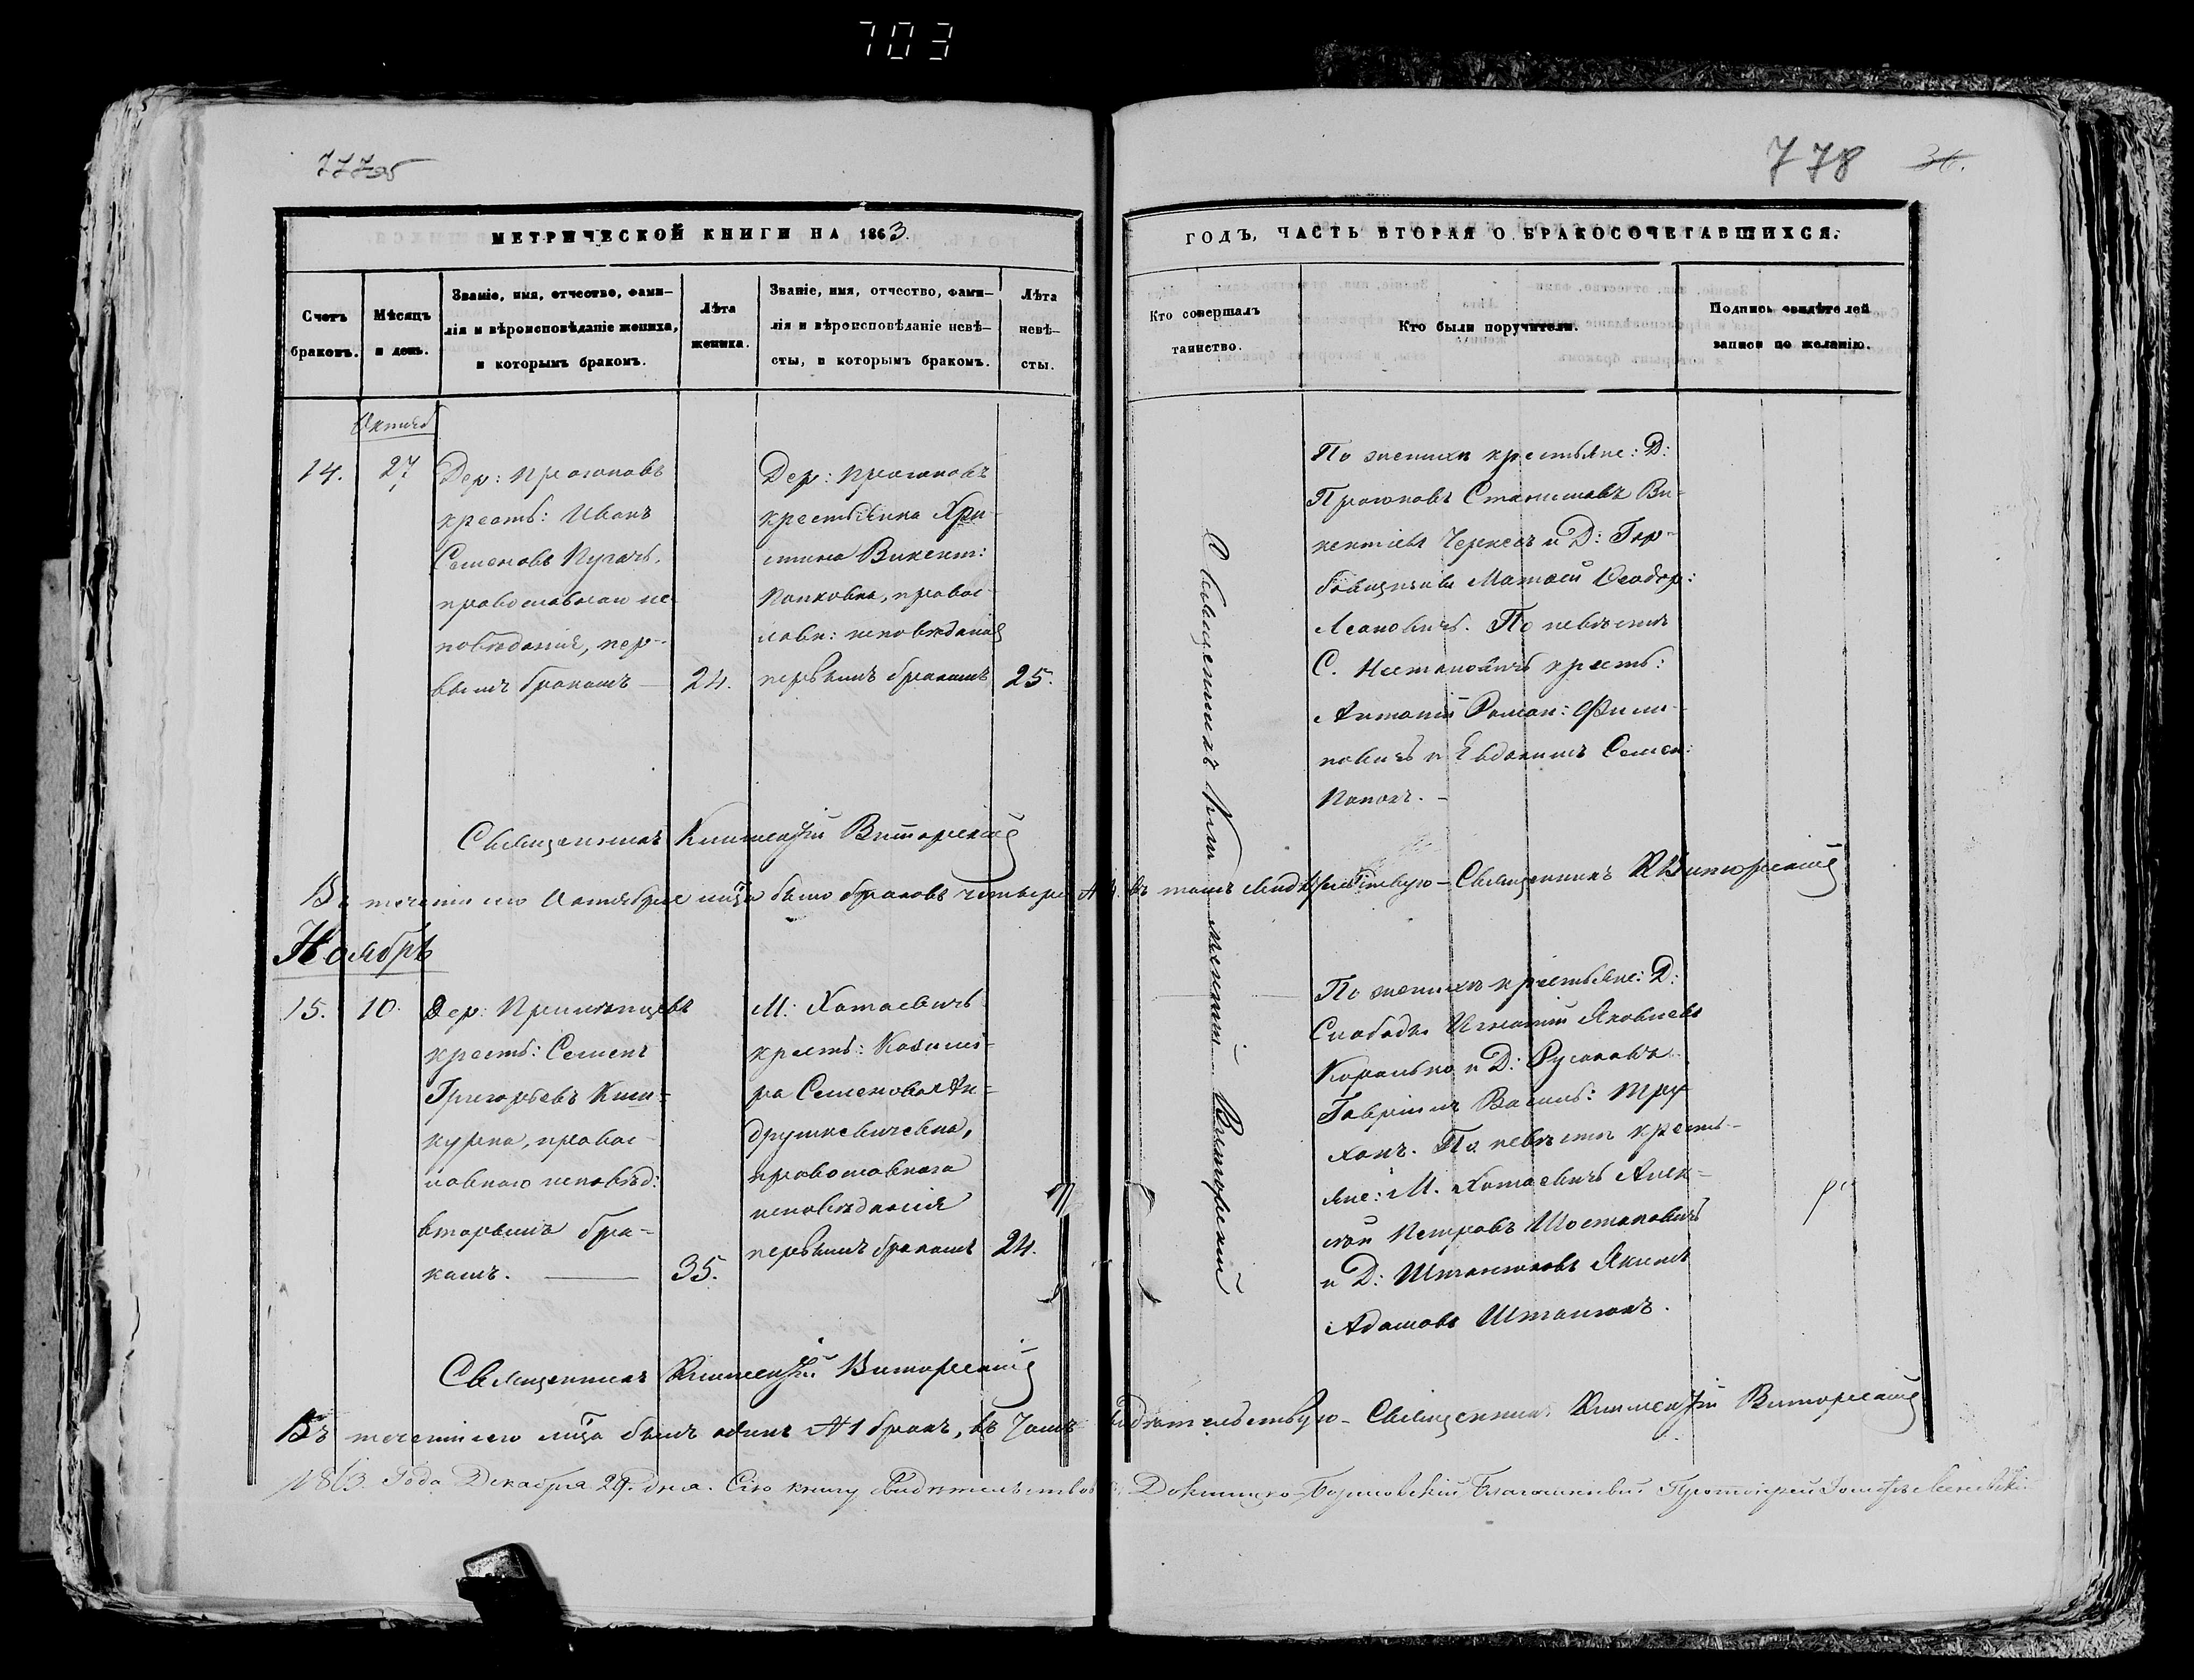 703
777об
778 36.
МЕТРИЧЕСКОЙ КНИГИ НА 1863.
ГОДЪ, ЧАСТЬ ВТОРАЯ О БРАКОСОЧЕТАВШИХСЯ.
Счетъ
браковъ.
Мѣсяцъ
и день.
Званіе, имя, отчество, фами-
лія и вѣроисповѣданіе жениха,
и которымъ бракомъ.
Лѣта
жениха.
Званіе, имя, отчество, фами-
лія и вѣроисповѣданіе невѣ-
сты, и которымъ бракомъ.
Лѣта
невѣ-
сты.
Кто совершалъ
таинство.
Кто были поручители.
Подпись свидѣтелей
записи по желанію.
Октяб
14.
27
Дер:
крестъ: Иванъ
Семеновъ Пугачъ,
православнаго ис
повѣданія, пер-
вымъ бракомъ
24.
Дер:
крестьянка Хри
стина Викент:
православ
слав: исповѣданія
первымъ бракомъ
25.
Священникъ Климентій Виторскій
По женихѣ крестьяне: Д:
Станиславъ Ви-
кентіевъ и Д:
Матѳей Ѳеодор:
По невѣстѣ
С. крестъ:
Антоній Роман: Фили-
повичъ и Евдокимъ Семен:
Въ теченіи сего Октября мѣца было браковъ четыре №4. въ томъ свидѣтельствую - Священникъ К Виторскій
Ноябрь
15.
10.
Дер:
крестъ: Семенъ
Григорьевъ
правос
лавнаго исповѣд:
вторымъ бра-
комъ.
35.
М: Хотаевичъ
крестъ: Казими-
ра Семенова Ан-
друшкевичевна,
православнаго
исповѣданія
первымъ бракомъ
24.
Священникъ Климентій Виторскій
По женихѣ крестьяне: Д:
Слободы Игнатій Яковлевъ
Королько и Д: Русаковъ
Гавріилъ Василь: Тру
ханъ. По невѣстѣ кресть-
яне: М. Хотаевичъ Алек-
сѣй Петровъ Шостаковичъ
и Д: Якимъ
Адамовъ
Священникъ Климентій Виторскій
Въ теченіи сего мѣца былъ одинъ №1 бракъ, въ томъ свидѣтельствую - Священникъ Климентій Виторскій
1863 Года Декабря 29. дня. Сію книгу свидѣтельствовалъ Докшицко-Борисовскій Благочинный Протоіерей Іосифъ